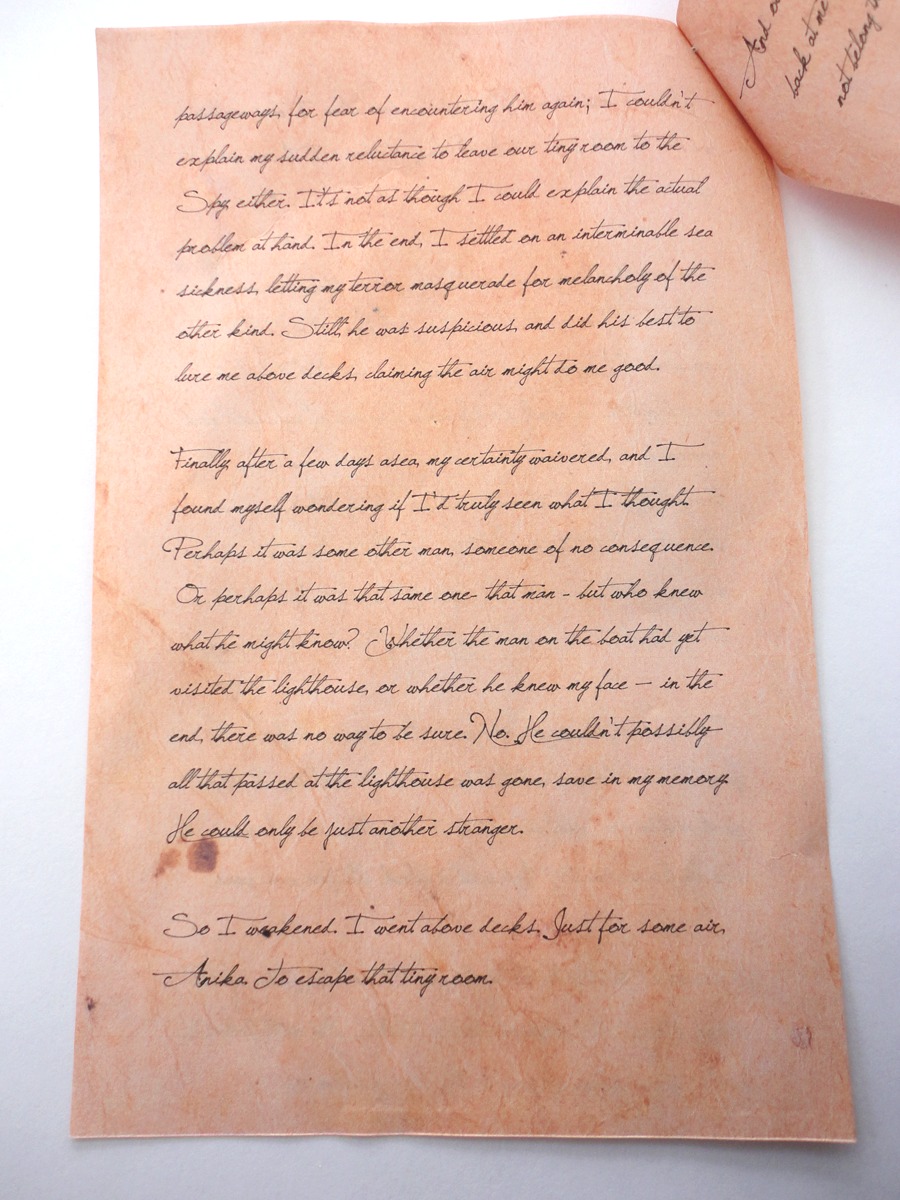 passageways, for fear of encountering him again; I couldn't
explain my sudden reluctance to leave our tiny room to the
Spy, either. It's not as though I could explain the actual
problem at hand. In the end, I settled on an interminable sea
sickness, letting my terror masquerade for melancholy of the
other kind. Still, he was suspicious, and did his best to
lure me above decks, claiming the air might do me good.
Finally, after a few days asea, my certainty waivered, and I
found myself wondering if I'd truly seen what I thought.
Perhaps it was some other man, someone of no consequence.
Or perhaps it was that same one- that man - but who knew
what he might know? Whether the man on the boat had yet
visited the lighthouse, or whether he knew my face — in the
end, there was no way to be sure. No. He couldn't possibly
all that passed at the lighthouse was gone, save in my memory.
He could only be just another stranger.
So I weakened. I went above decks. Just for some air,
Anika. To escape that tiny room.
And
back at me
not belong